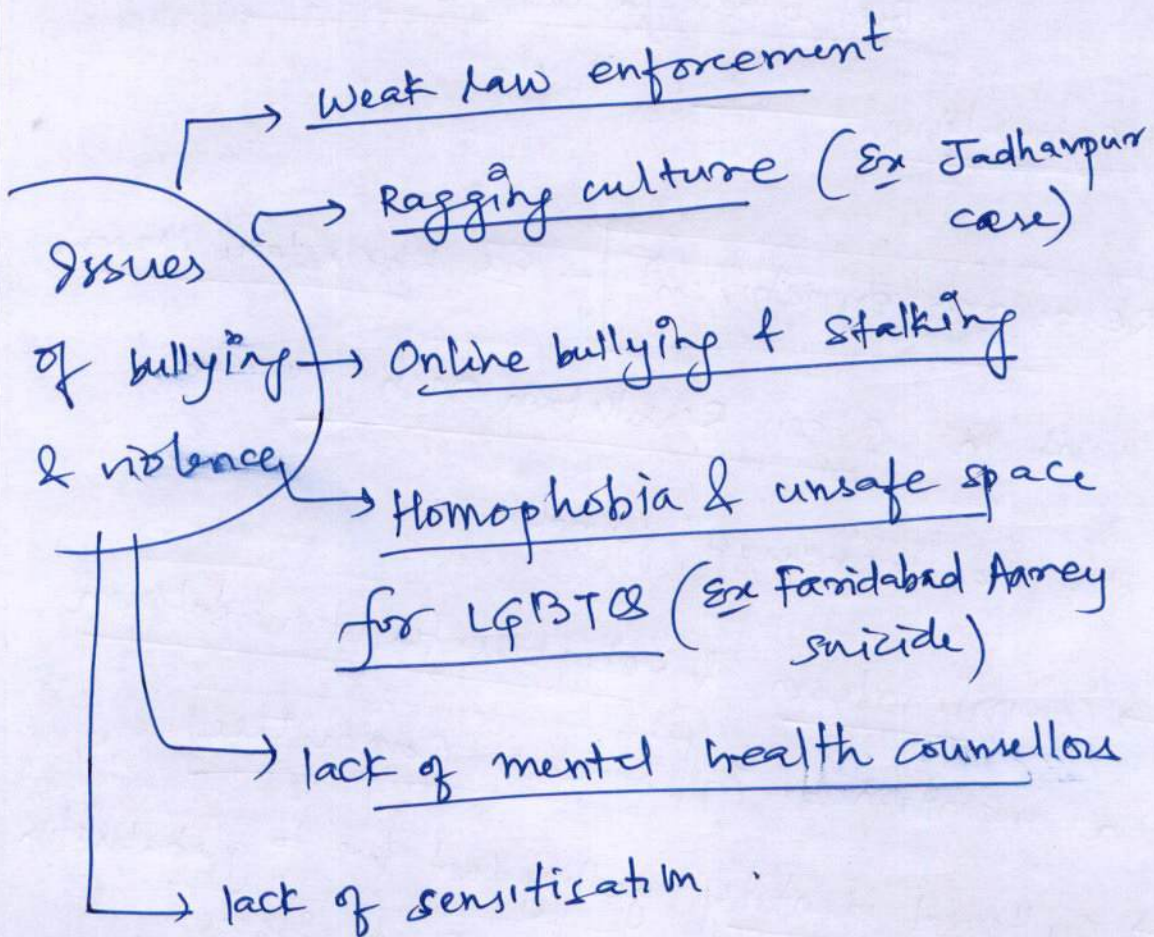 Issues
of bullying
& violence
→ Weak law enforcement
→ Ragging culture (Ex Jadhavpur
case)
→ Online bullying & stalking
→ Homophobia & unsafe space
for LGBTQ (Ex Faridabad Aarvey
suicide)
→ lack of mental health counsellors
→ lack of sensitisation.